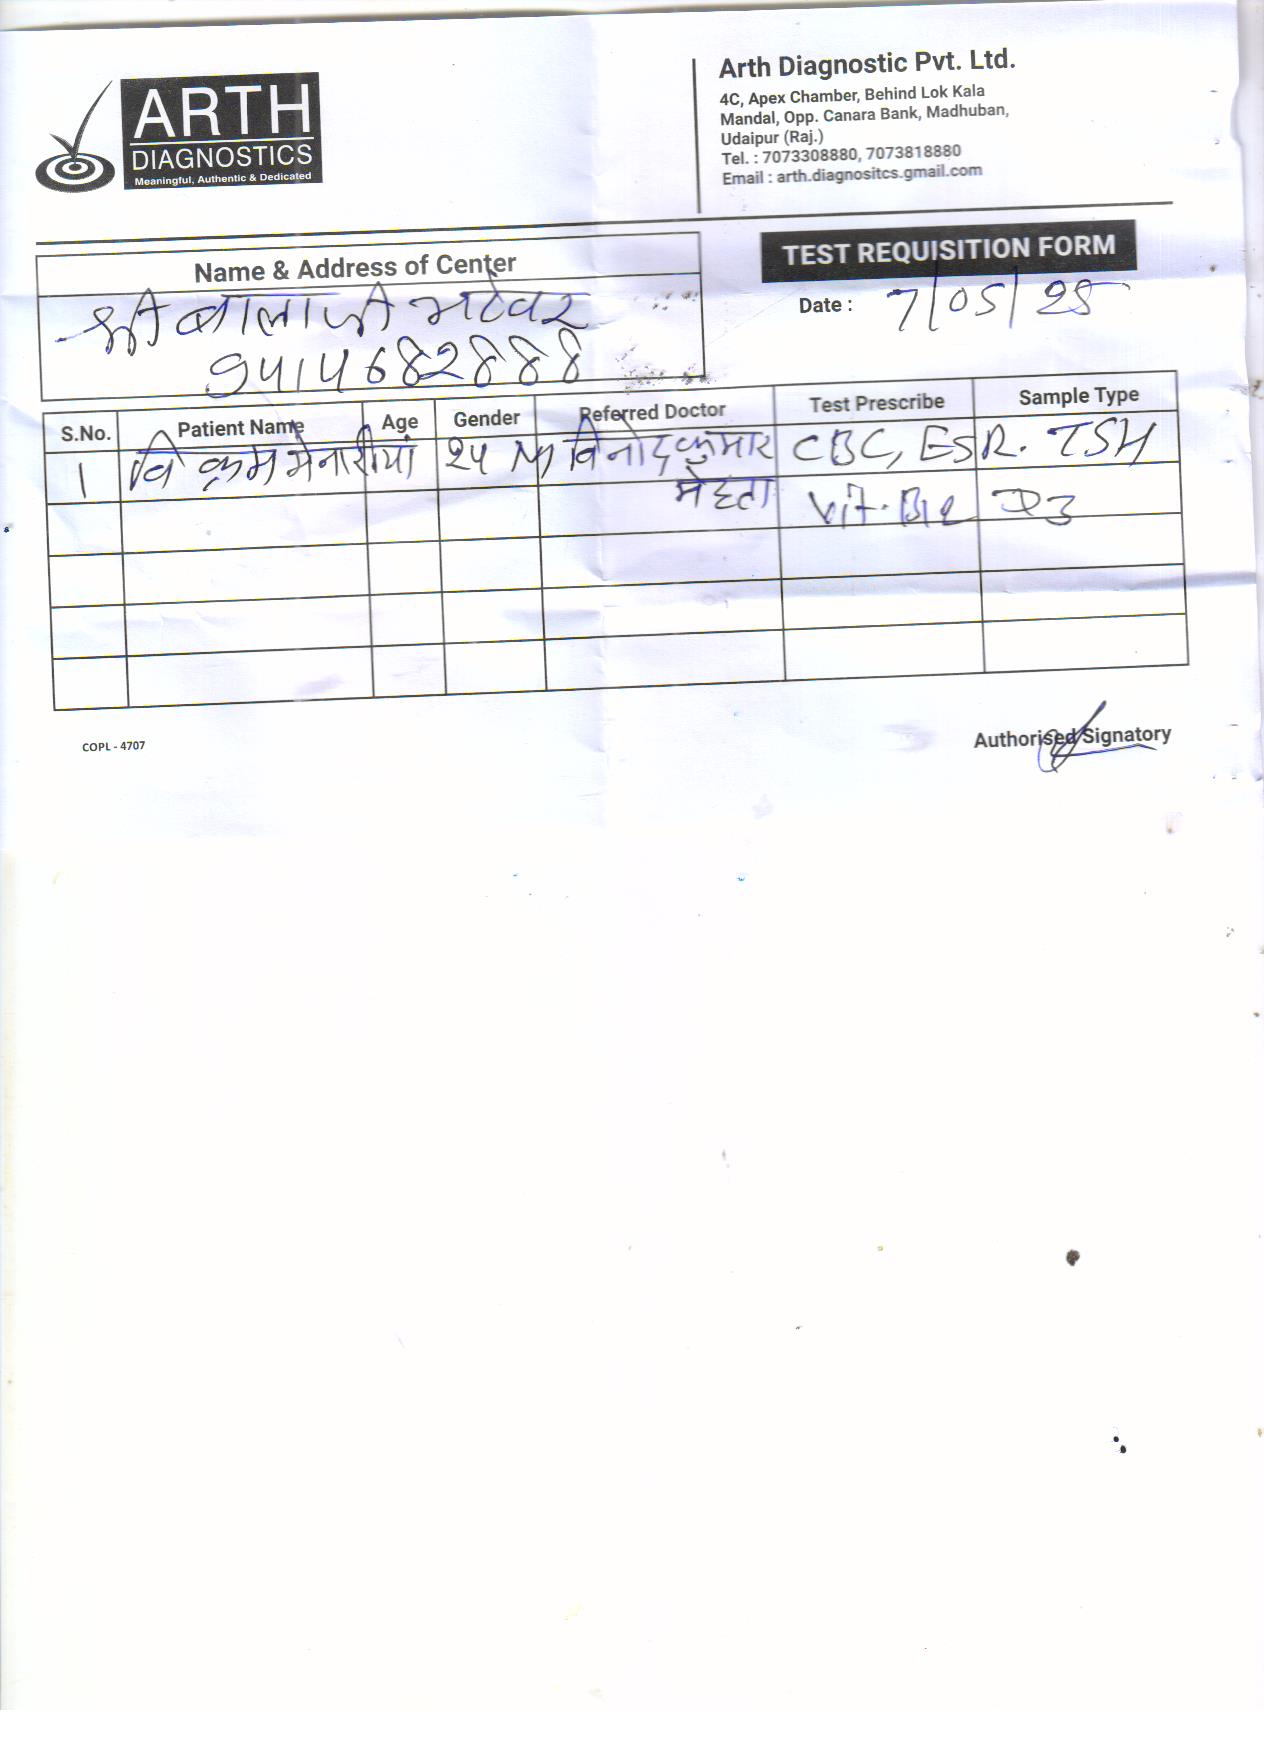 ARTH
DIAGNOSTICS
Meaningful, Authentic & Dedicated
Arth Diagnostic Pvt. Ltd.
4C, Apex Chamber, Behind Lok Kala
Mandal, Opp. Canara Bank, Madhuban,
Udaipur (Raj.)
Tel. : 7073308880, 7073818880
Email : arth.diagnositcs.gmail.com
Name & Address of Center
श्री बालाजी भटेवर
9414682888
TEST REQUISITION FORM
Date : 7/05/25
S.No. Patient Name Age Gender Referred Doctor Test Prescribe Sample Type
1 विक्रम मेनारीया 24 M विनोद कुमार CBC, ESR. TSH
मेहता Vit. B12 D3
COPL - 4707
Authorised Signatory